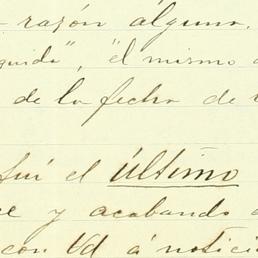 razón alguna.
guida", "el mismo
de la fecha de
fuí el último
y acabando
con Vd á notici